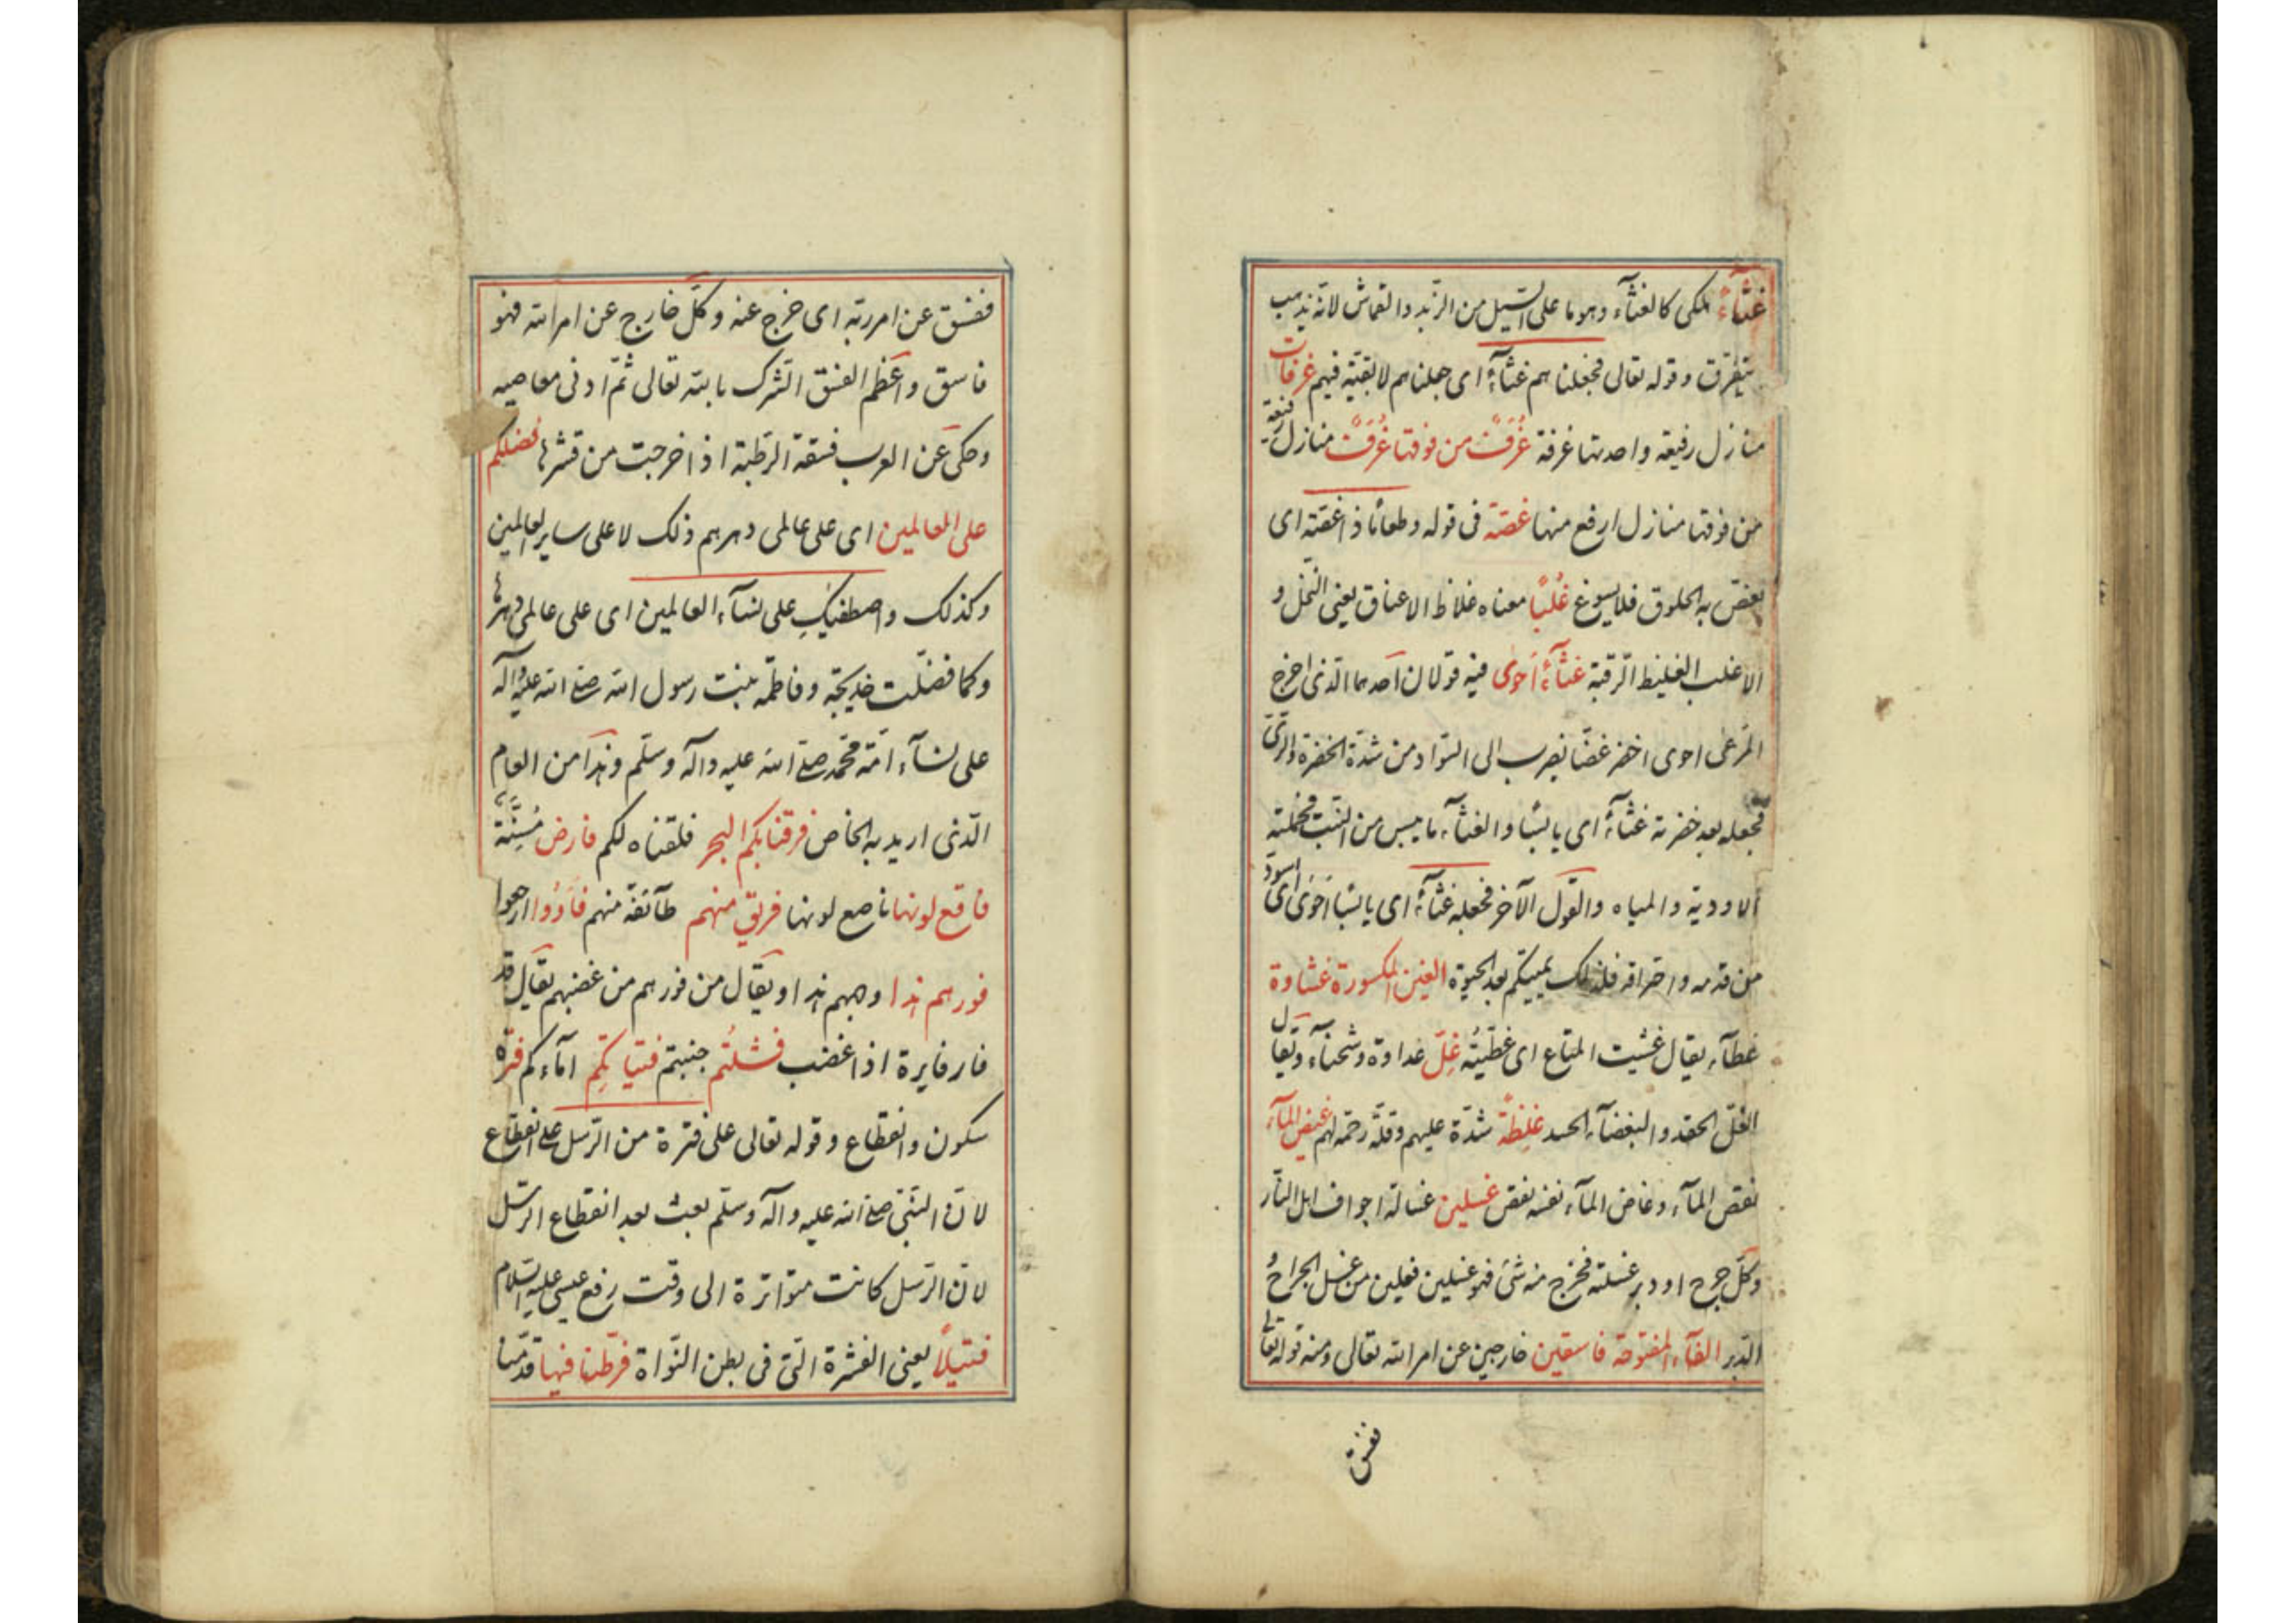 غُثَآءً هلكى كالغثآء وهو ما على السّيل من الزّبد والقماش لانّه يذهب
يتفرّق وقوله تعالى فجعلناهم غثآءً اى جعلناهم لا بقيّة فيهم غرفات
منازل رفيعة واحدتها غرفة غُرَفٌ من فوقها غُرَفٌ منازل رفيعة
من فوقها منازل ارفع منها غصّة فى قوله وطعامًا ذا غصّة اى
يغصّ به الحلوق فلا يسوغ غُلْبًا معناه غلاظ الاعناق يعنى النّخل و
الاغلب الغليظ الرّقبة غثآءً احوى فيه قولان احدهما الّذى اخرج
المرعى احوى اخضر غضًّا يضرب الى السّواد من شدّة الخضرة والرّىّ
فجعله بعد خضرته غثآءً اى يابسًا والغثآء ما يبس من النّبت فحملته
الاودية والمياه والقول الآخر فجعله غثآءً اى يابسًا احوى اى اسود
من قدمه واحتراقه فلذلك يميتكم بعد الحيوة الغين المكسورة غشاوة
غطآء يقال غشيت المتاع اى غطّيته غِلّ عداوة وشحنآء ويقال
الغلّ الحقد والبغضآء الحسد غِلظةً شدّة عليهم وقلّة رحمة لهم غيض المآء
نقص المآء وغاض المآء نفسه نقص غسلين غسالة اجواف اهل النّار
وكلّ جرح او دبر غسلته فخرج منه شئ فهو غسلين فعلين من غسل الجراح و
الدّبر الفآء المفتوحة فاسقين خارجين عن امر الله تعالى ومنه قوله تعالى
ففسق
ففسق عن امر ربّه اى خرج عنه وكلّ خارج عن امر الله فهو
فاسق واعظم الفسق الشّرك بالله تعالى ثمّ ادنى معاصيه
وحكى عن العرب فسقة الرّطبة اذا خرجت من قشرها فضلكم
على العالمين اى على عالمى دهرهم ذلك لا على ساير العالمين
وكذلك واصطفيكِ على نسآء العالمين اى على عالمى دهرها
وكما فضّلت خديجة وفاطمه بنت رسول الله صلى الله عليه وآله
على نسآء امّة محمّد صلى الله عليه وآله وسلّم وهذا من العام
الّذى اريد به الخاص فرقنا بكم البحر فلقناه لكم فارض مُسِنَّة
فاقع لونها ناصع لونها فريق منهم طآئفة منهم فآؤوا ارجعوا
فورهم هذا وجههم هذا ويقال من فورهم من غضبهم يقال قد
فار فايرة اذا غضب فشلتُم جنبتم فتياتكم امآءكم فترة
سكون وانقطاع وقوله تعالى على فترة من الرّسل على انقطاع
لانّ النّبىّ صلى الله عليه وآله وسلّم بعث بعد انقطاع الرّسل
لانّ الرّسل كانت متواترة الى وقت رفع عيسى عليه السّلام
فتيلاً يعنى القشرة الّتى فى بطن النّواة فرّطنا فيها قدّمنا